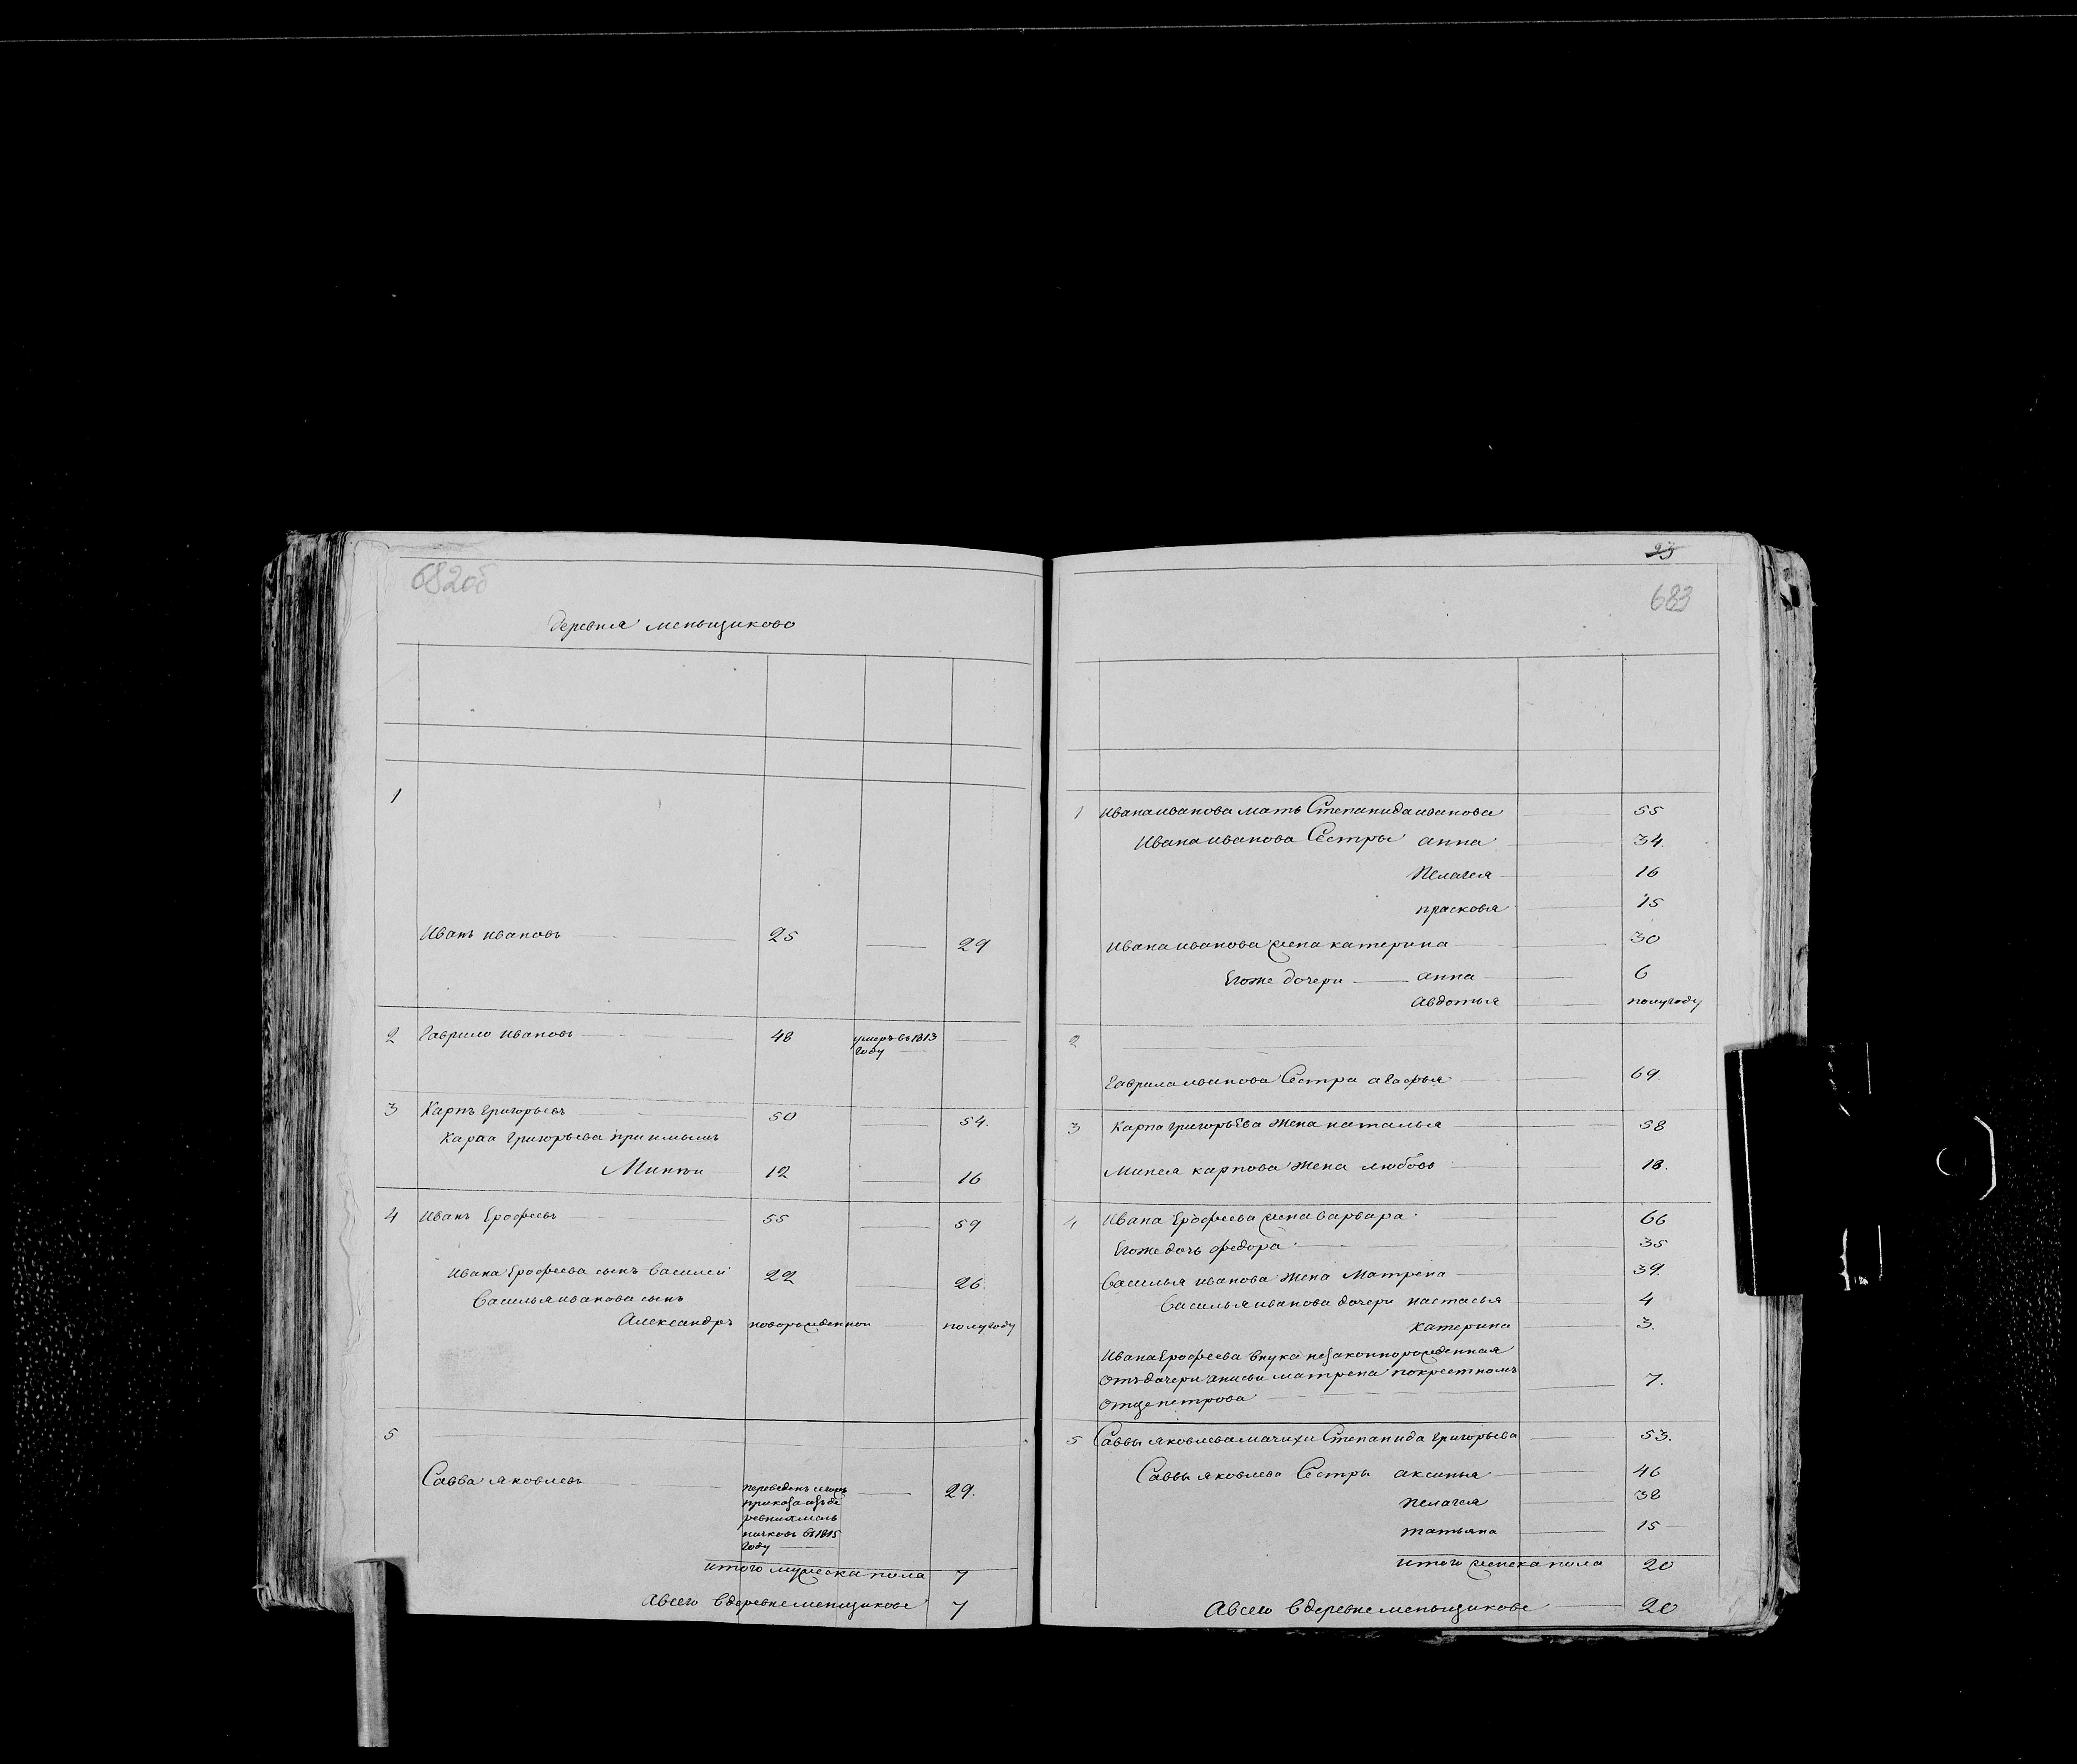 682об
деревня меньщиково
1
Иванъ ивановъ 25 29
2 Гаврило ивановъ 48 умеръ въ 1813
году
3 Карпъ григорьевъ 50 54.
Карпа григорьева приимышъ
Миней 12 16
4 Иванъ Ерофеевъ 55 59
Ивана Ерофеева сынъ василей 22 26.
Василья иванова сынъ
Александръ новорожденной полугоду
5
Савва яковлевъ переведенъ 29.
приказа изъ де
ревни
въ 1815
году
итого мужеска пола 7
Авсего вдеревне меньщикове 7
23
683
1 Ивана иванова мать Степанида иванова 55
Ивана иванова Сестры анна 34.
Пелагея 16
прасковья 15
Ивана иванова жена катерина 30
Егоже дочери анна 6
Авдотья полугоду
2
Гаврила иванова Сестра агафья 69.
3 Карпа григорьева жена наталья 58
Минея карпова жена любовь 18.
4 Ивана Ерофеева жена варвара 66
Егоже дочь федора 35
Василья иванова жена Матрена 39.
Василья иванова дочери настасья 4
Катерина 3.
Ивана Ерофеева внука незаконнорожденная
отъ дочери анисьи матрена покрестномъ 7.
отце петрова
5 Саввы яковлева мачиха Степанида григорьева 53.
Саввы яковлева Сестры аксинья 46
Пелагея 38
татьяна 15
итого женска пола 20
Авсего вдеревне меньщикове 20